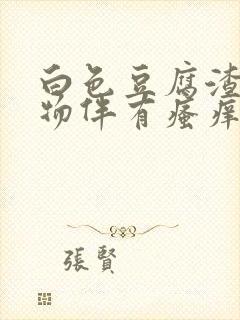 白色豆腐渣
物伴有瘙痒
張賢